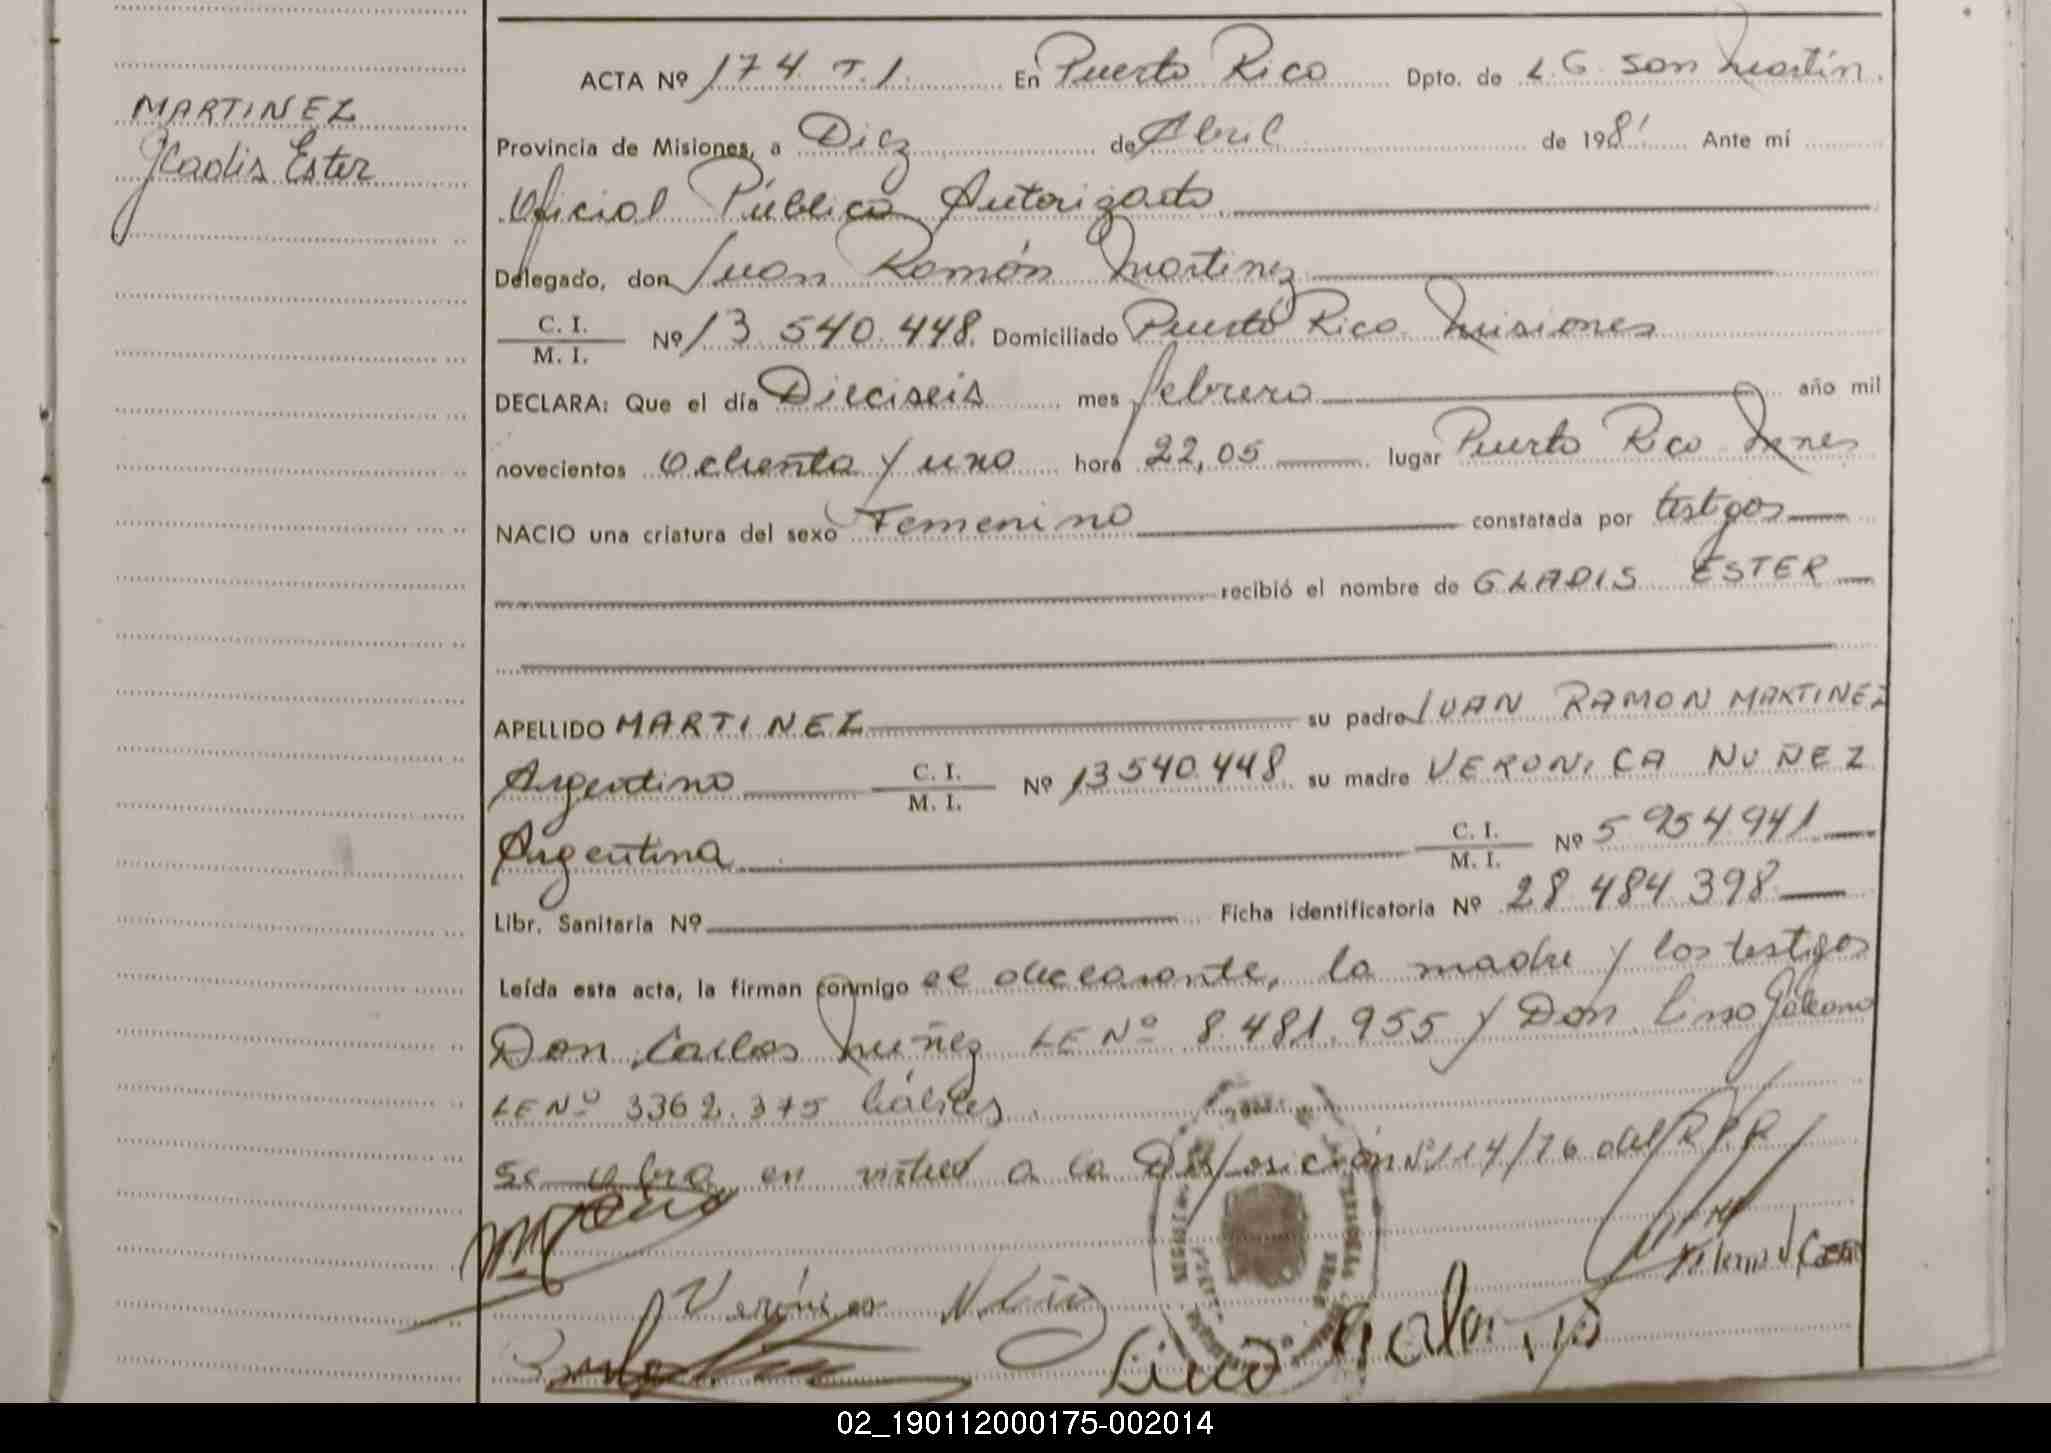 MARTINEZ
Gladis Ester
ACTA Nº 174 T.1. En Puerto Rico Dpto. de L.G. San Martín.
Provincia de Misiones, a Diez de Abril de 1981 Ante mí
Oficial Público Autorizado
Delegado, don Juan Ramón Martinez
C. I.
M. I.
Nº 13.540.448. Domiciliado Puerto Rico Misiones
DECLARA: Que el día Dieciseis mes febrero año mil
novecientos Ochenta y uno hora 22,05 lugar Puerto Rico Mnes
NACIO una criatura del sexo Femenino constatada por testigos
recibió el nombre de GLADIS ESTER
APELLIDO MARTINEZ su padre JUAN RAMON MARTINEZ
Argentino C. I. M. I. Nº 13540.448 su madre VERONICA NUÑEZ
Argentina C. I. M. I. Nº 5954941
Libr. Sanitaria Nº Ficha identificatoria Nº 28.484.398
Leída esta acta, la firman conmigo el declarante, la madre y los testigos
Don Carlos Nuñez LE Nº 8.481.955 y Don Lino Galeano
LE Nº 3362.375 hábiles.
Se labra en virtud a la Disposición Nº 114/76 del R.P.P.
Verónica
Lino
02_190112000175-002014